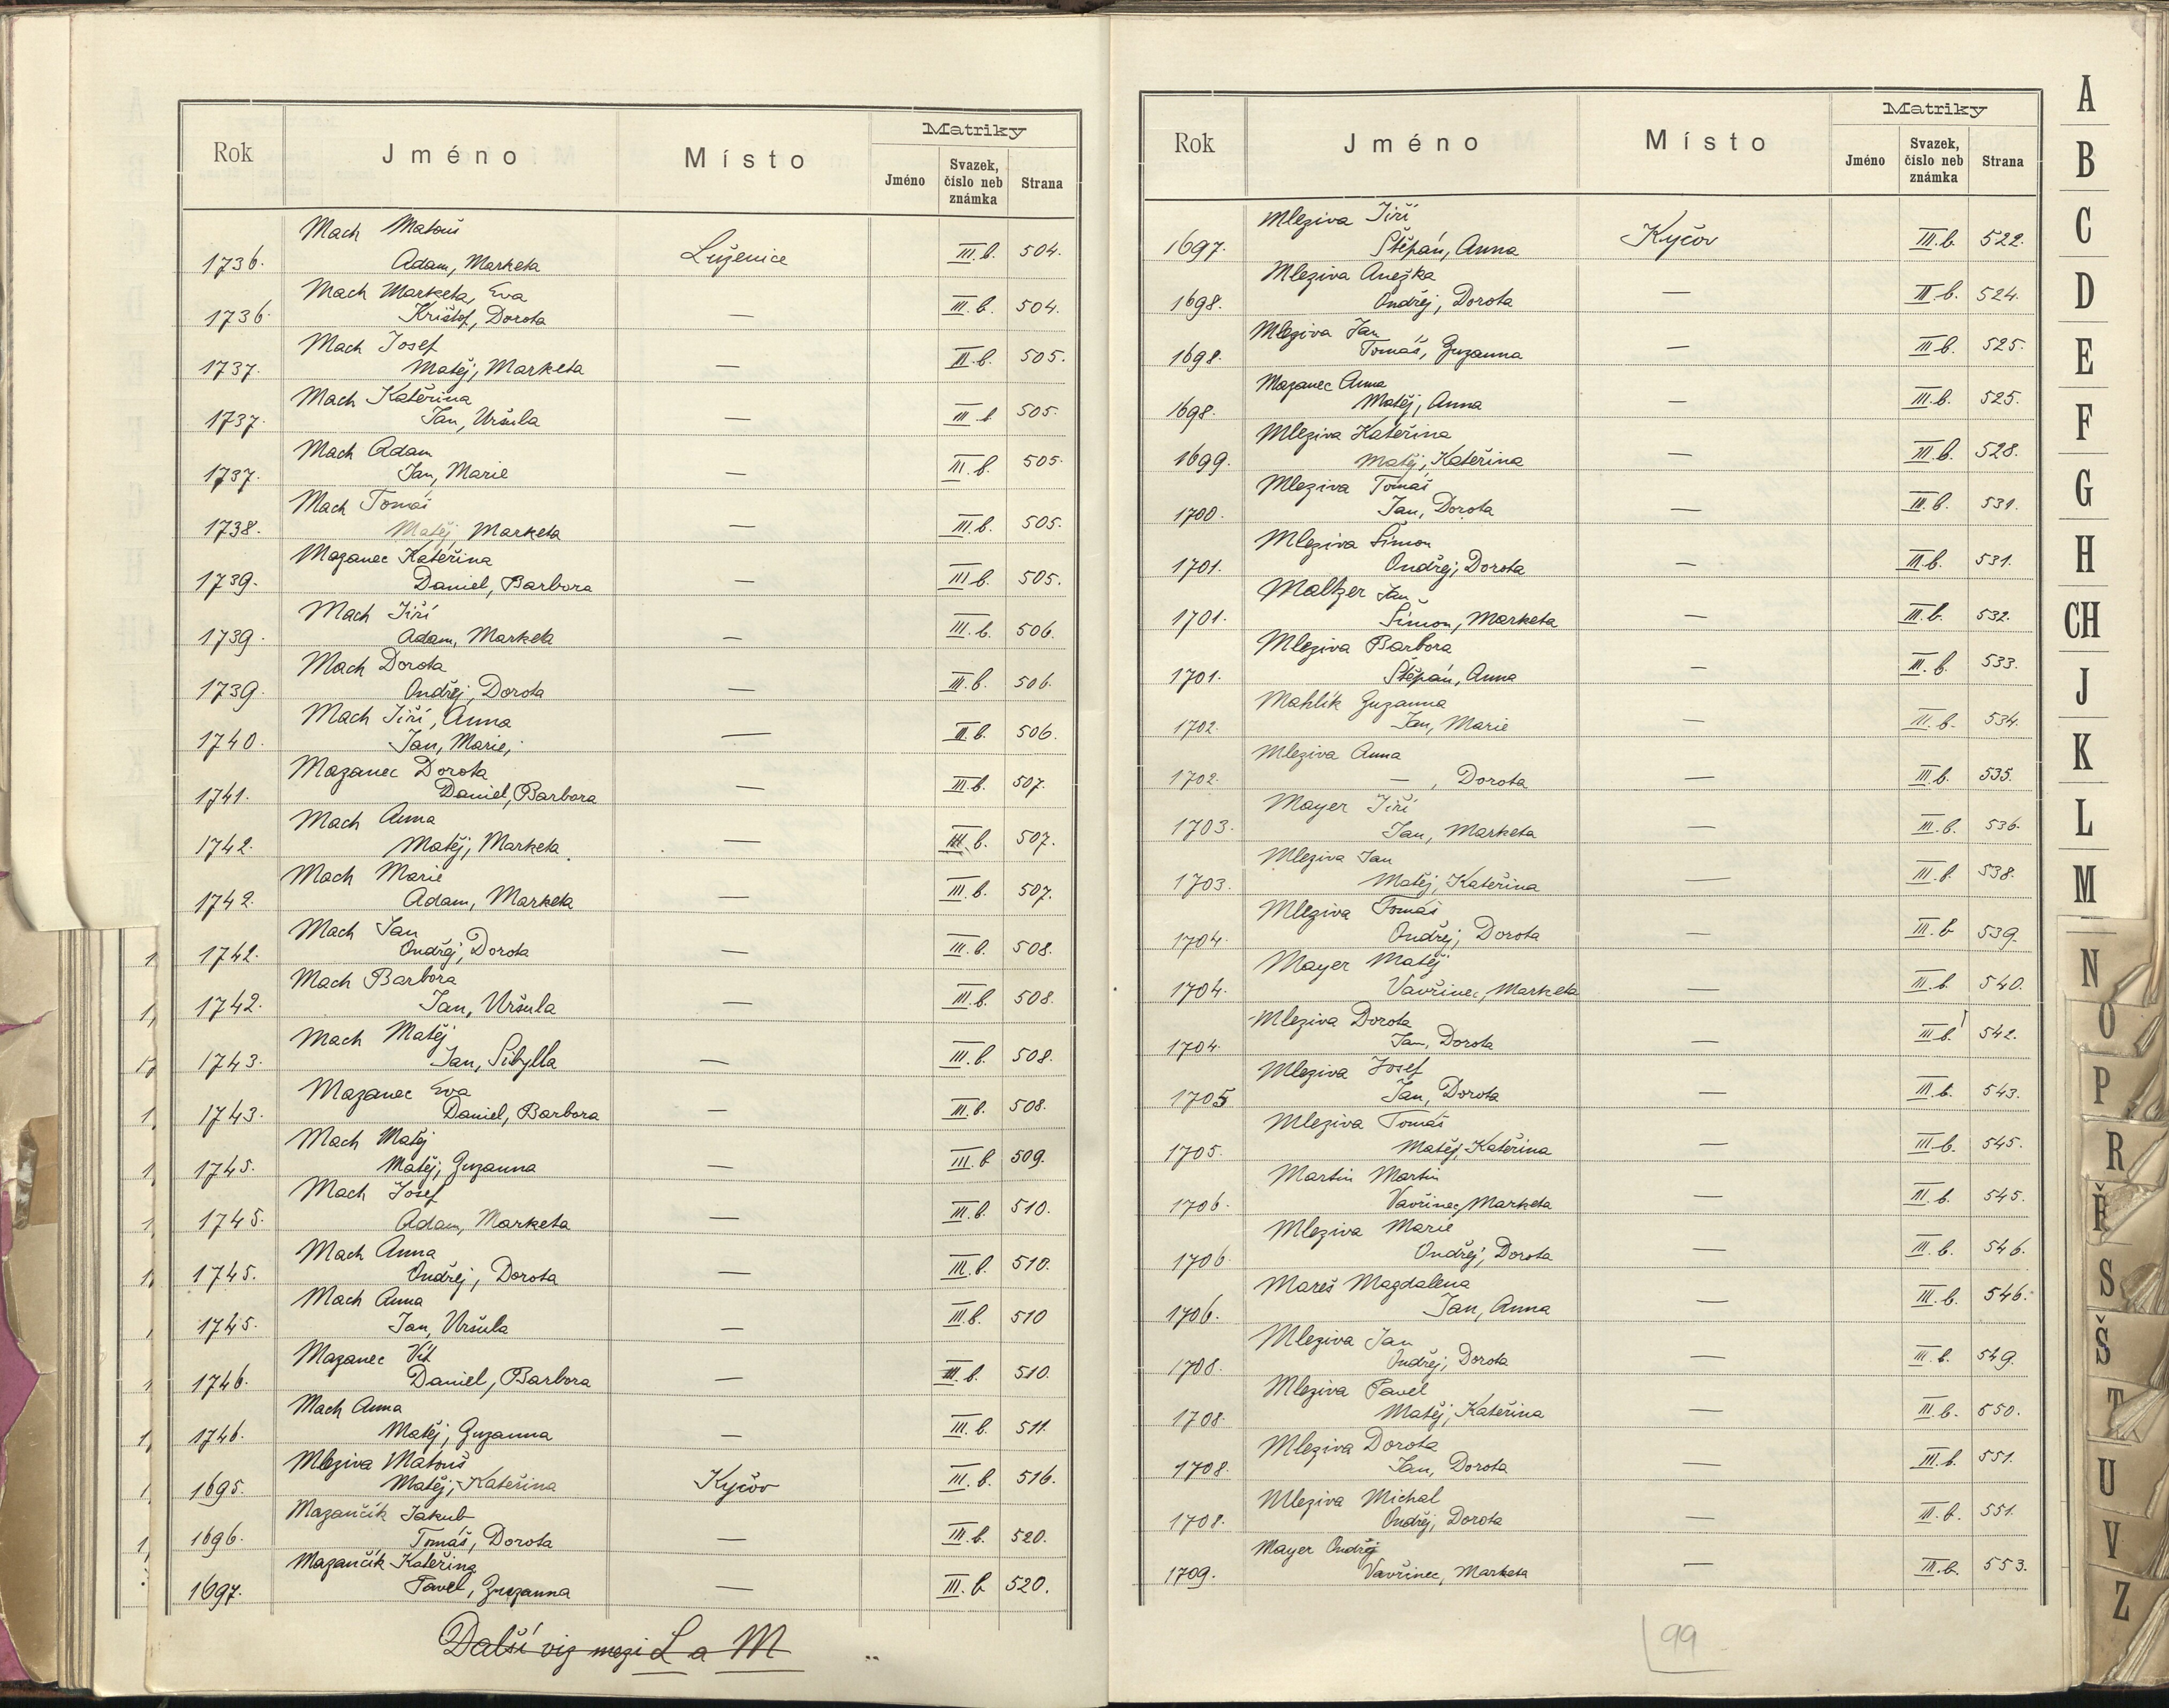 Rok Jméno Místo Matriky
Jméno Svazek, číslo neb známka Strana
Mach Matouš
1736. Adam, Marketa Luženice III.b. 504.
Mach Marketa, Eva
1736. Krištof, Dorota — III.b. 504.
Mach Josef
1737. Matěj, Marketa — III.b. 505.
Mach Kateřina
1737. Jan, Uršula — III.b 505.
Mach Adam
1737. Jan, Marie — III.b. 505.
Mach Tomáš
1738. Matěj, Marketa — III.b. 505.
Mazanec Kateřina
1739. Daniel, Barbora — III.b. 505.
Mach Jiří
1739. Adam, Marketa — III.b. 506.
Mach Dorota
1739. Ondřej, Dorota — III.b. 506.
Mach Jiří, Anna
1740. Jan, Marie, — III.b. 506.
Mazanec Dorota
1741. Daniel, Barbora — III.b. 507.
Mach Anna
1742. Matěj, Marketa — III.b. 507.
Mach Marie
1742. Adam, Marketa — III.b. 507.
Mach Jan
1742. Ondřej, Dorota — III.b. 508.
Mach Barbora
1742. Jan, Uršula — III.b. 508.
Mach Matěj
1743. Jan, Sibylla — III.b. 508.
Mazanec Eva
1743. Daniel, Barbora — III.b. 508.
Mach Matěj
1745. Matěj, Zuzanna — III.b 509.
Mach Josef
1745. Adam, Marketa — III.b. 510.
Mach Anna
1745. Ondřej, Dorota — III.b. 510.
Mach Anna
1745. Jan, Uršula — III.b. 510
Mazanec Vít
1746. Daniel, Barbora — III.b. 510.
Mach Anna
1746. Matěj, Zuzanna — III.b. 511.
Mleziva Matouš
1695. Matěj, Kateřina Kyčov III.b. 516.
Mazančík Jakub
1696. Tomáš, Dorota — III.b. 520.
Mazančík Kateřina
1697. Pavel, Zuzanna — III.b 520.
Další viz mezi L a M
Rok Jméno Místo Matriky
Jméno Svazek, číslo neb známka Strana
Mleziva Jiří
1697. Štěpán, Anna Kyčov III.b. 522.
Mleziva Anežka
1698. Ondřej, Dorota — III.b. 524.
Mleziva Jan
1698. Tomáš, Zuzanna — III.b. 525.
Mazanec Anna
1698. Matěj, Anna — III.b. 525.
Mleziva Kateřina
1699. Matěj, Kateřina — III.b. 528.
Mleziva Tomáš
1700. Jan, Dorota — III.b. 531.
Mleziva Šimon
1701. Ondřej, Dorota — III.b. 531.
Maltzer Jan
1701. Šimon, Marketa — III.b. 532.
Mleziva Barbora
1701. Štěpán, Anna — III.b. 533.
Mahlík Zuzanna
1702. Jan, Marie — III.b. 534.
Mleziva Anna
1702. — , Dorota — III.b. 535.
Mayer Jiří
1703. Jan, Marketa — III.b. 536.
Mleziva Jan
1703. Matěj, Kateřina — III.b. 538.
Mleziva Tomáš
1704. Ondřej, Dorota — III.b 539.
Mayer Matěj
1704. Vavřinec, Marketa — III.b 540.
Mleziva Dorota
1704. Jan, Dorota — III.b. 542.
Mleziva Josef
1705 Jan, Dorota — III.b. 543.
Mleziva Tomáš
1705. Matěj, Kateřina — III.b. 545.
Martin Martin
1706. Vavřinec, Marketa — III.b. 545.
Mleziva Marie
1706. Ondřej, Dorota — III.b. 546.
Mareš Magdalena
1706. Jan, Anna — III.b. 546.
Mleziva Jan
1708. Ondřej, Dorota — III.b. 549.
Mleziva Pavel
1708. Matěj, Kateřina — III.b. 550.
Mleziva Dorota
1708. Jan, Dorota — III.b. 551.
Mleziva Michal
1708. Ondřej, Dorota — III.b. 551.
Mayer Ondřej
1709. Vavřinec, Marketa — III.b. 553.
99
A
B
C
D
E
F
G
H
CH
J
K
L
M
N
O
P
R
Ř
S
Š
T
U
V
Z